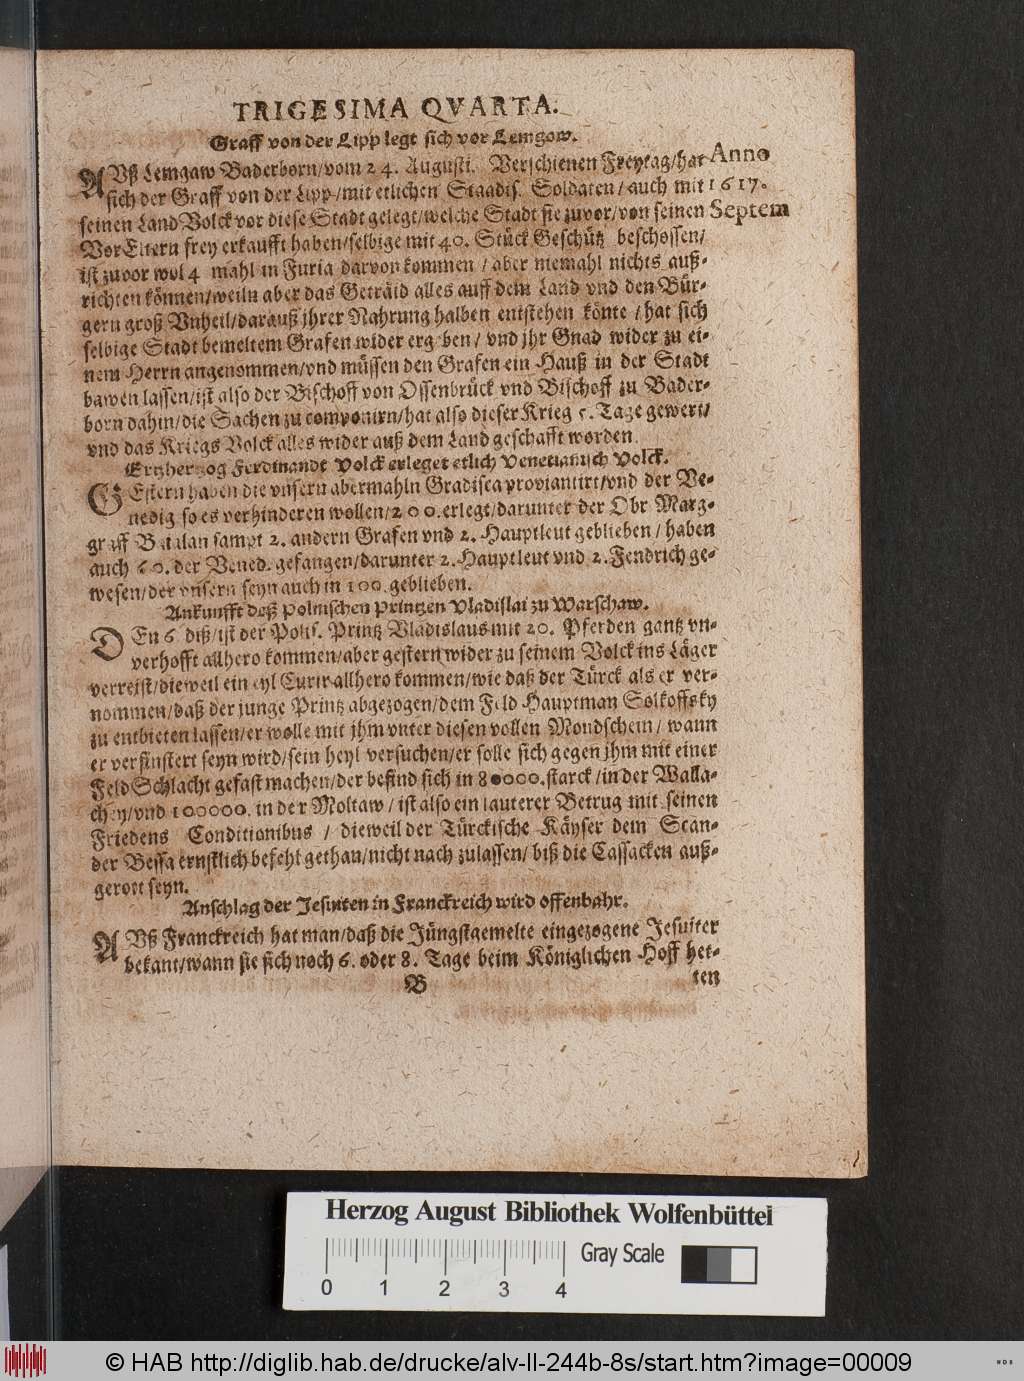 TRIGESIMA QVARTA.
Graff von der Lipp legt sich vor Lemgow.
AVß Lemgaw Baderborn/vom 24. Augusti. Verschienen Freytag/hat
sich der Graff von der Lipp/mit etlichen Staadis. Soldaten/auch mit
seinen Land Volck vor diese Stadt gelegt/welche Stadt sie zuvor/von seinen
Vor Eltern frey erkaufft haben/selbige mit 40. Stück Geschütz beschossen/
ist zuvor wol 4 mahl in Furia darvon kommen / aber niemahl nichts auß-
richten können/weiln aber das Geträid alles auff dem Land vnd den Bür-
gern groß Vnheil/darauß jhrer Nahrung halben entstehen könte / hat sich
selbige Stadt bemeltem Grafen wider erg ben/ vnd jhr Gnad wider zu ei-
nem Herrn angenommen/vnd müssen den Grafen ein Hauß in der Stadt
bawen lassen/ist also der Bischoff von Ossenbrück vnd Bischoff zu Bader-
born dahin/die Sachen zu componirn/hat also dieser Krieg 5. Tage gewert/
vnd das Kriegs Volck alles wider auß dem Land geschafft worden.
Anno
1617.
Septem
Ertzhertzog Ferdinandt Volck erleget etlich Venetianisch Volck.
GEstern haben die vnsern abermahln Gradisca proviantirt/vnd der Ve-
nedig so es verhinderen wollen/200.erlegt/darunter der Obr Marg-
graff Batalan sampt 2. andern Grafen vnd 2. Hauptleut geblieben / haben
auch 60. der Vened. gefangen/darunter 2. Hauptleut vnd 2. Fendrich ge-
wesen/der vnsern seyn auch in 100. geblieben.
Ankunfft deß Polnischen Printzen Vladislai zu Warschaw.
DEn 6 diß/ist der Polis. Printz Vladislaus mit 20. Pferden gantz vn-
verhofft allhero kommen/aber gestern wider zu seinem Volck ins Läger
verreist/dieweil ein eyl Curir allhero kommen/wie daß der Türck als er ver-
nommen/daß der junge Printz abgezogen/dem Feld Hauptman Solkoffsky
zu entbieten lassen/er wolle mit jhm vnter diesen vollen Mondschein/ wann
er verfinstert seyn wird/sein heyl versuchen/er solle sich gegen jhm mit einer
Feld Schlacht gefast machen/der befind sich in 80000.starck/in der Walla-
chey/vnd 100000. in der Moltaw / ist also ein lauterer Betrug mit seinen
Friedens Conditionibus / dieweil der Türckische Käyser dem Scan-
der Bessa ernstlich befehl gethan/nicht nach zulassen/ biß die Cassacken auß-
gerott seyn.
Anschlag der Jesuiten in Franckreich wird offenbahr.
AVß Franckreich hat man/daß die Jüngstgemelte eingezogene Jesuiter
bekant/wann sie sich noch 6. oder 8. Tage beim Königlichen Hoff het-
B
ten
Herzog August Bibliothek Wolfenbüttel
Gray Scale
0 1 2 3 4
© HAB http://diglib.hab.de/drucke/alv-ll-244b-8s/start.htm?image=00009